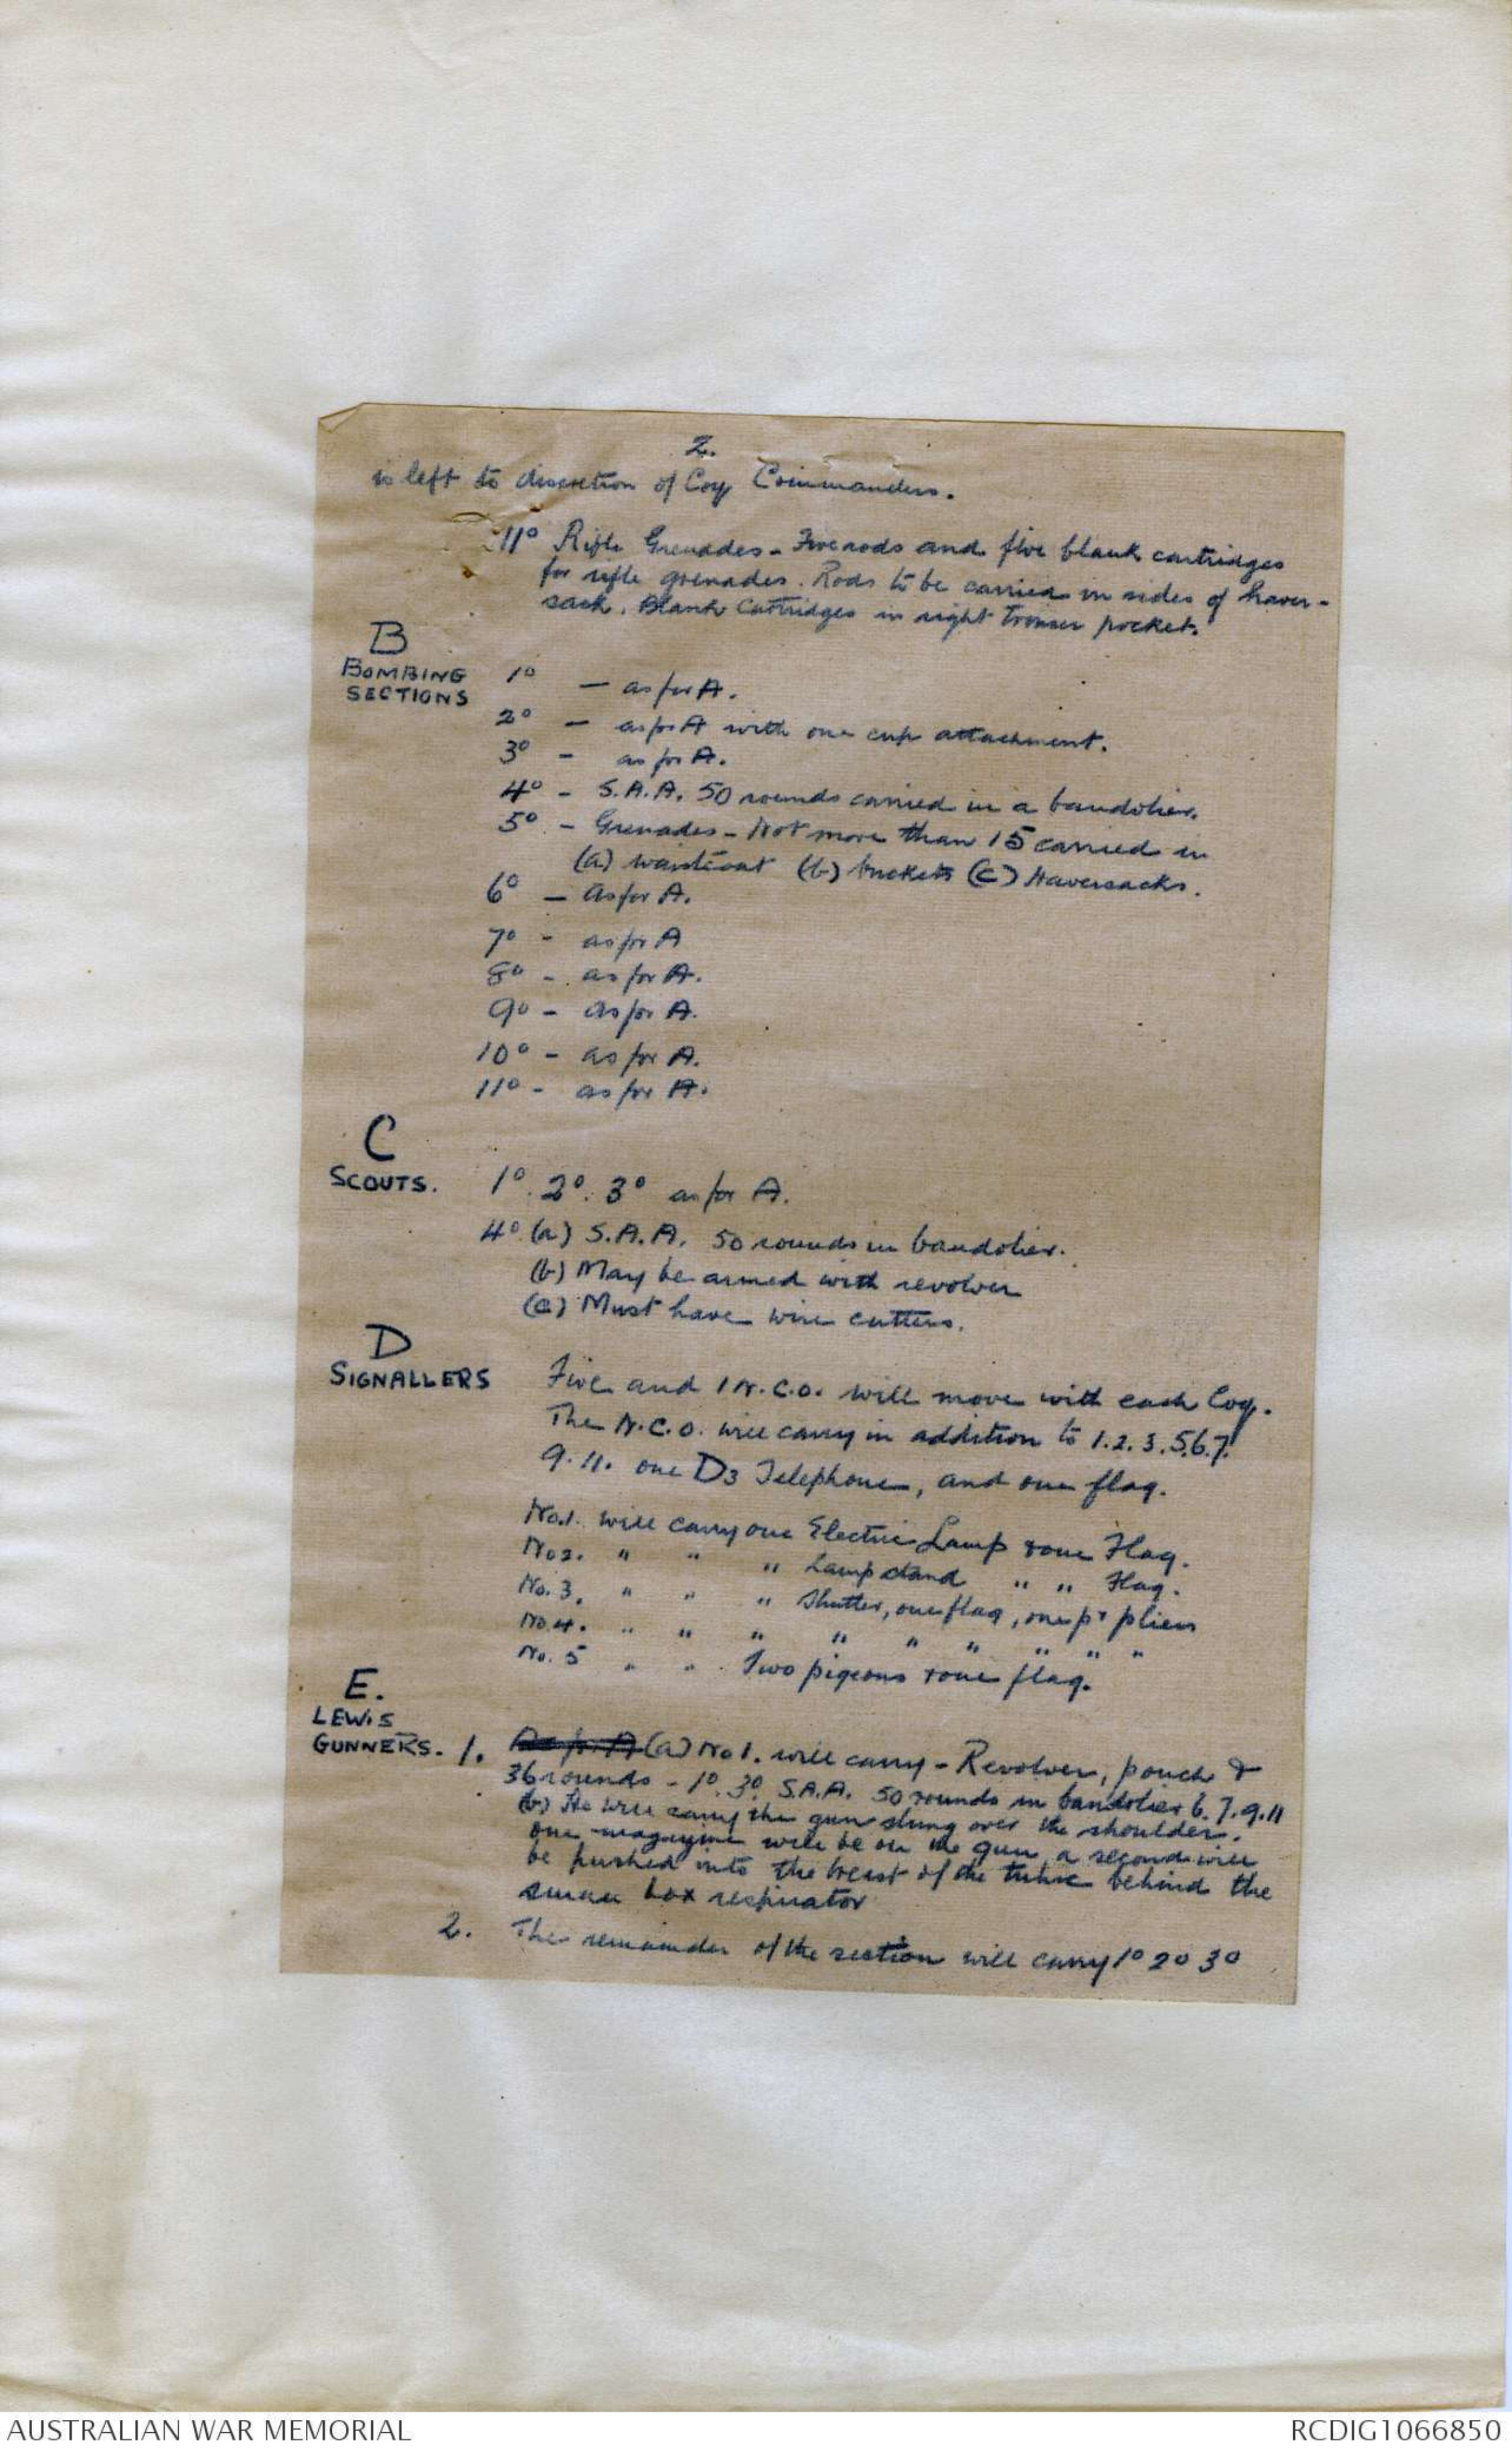 2.
is left to discretion of Coy Commanders.
11° Rifle Grenades - Five rods and five blank cartridges
for rifle grenades. Rods to be carried in sides of haver-
sack. Blank Cartridges in right trouser pocket.
B
BOMBING
SECTIONS
1° - as for A.
2° - as for A with one cup attachment.
3° - as for A.
4° - S.A.A. 50 rounds carried in a bandolier.
5° - Grenades - Not more than 15 carried in
(a) waistcoat (b) buckets (C) Haversacks.
6° - As for A.
7° - as for A
8° - as for A.
9° - As for A.
10° - as for A.
11° - as for A.
C
SCOUTS.
1°. 2°. 3° as for A.
4° (a) S.A.A. 50 rounds in bandolier.
(b) May be armed with revolver
(c) Must have wire cutters.
D
SIGNALLERS
Five and 1 N.C.O. will move with each Coy.
The N.C.O. will carry in addition to 1.2.3.5.6.7.
9.11. one D3 Telephone, and one flag.
No.1. will carry one Electric Lamp & one Flag.
No2. " " " Lamp stand " " Flag.
No. 3. " " " Shutter, one flag, one pr pliers
No.4. " " " " " " " " "
No. 5 " " Two pigeons & one flag.
E.
LEWIS
GUNNERS.
1. As for A (a) No 1. will carry - Revolver, pouch &
36 rounds - 1°. 3°. S.A.A. 50 rounds in bandolier 6.7.9.11
(b) He will carry the gun slung over the shoulder.
One magazine will be on the gun, a second will
be pushed into the breast of the tunic behind the
small box respirator
2. The remainder of the section will carry 1° 2° 3°
AUSTRALIAN WAR MEMORIAL
RCDIG1066850